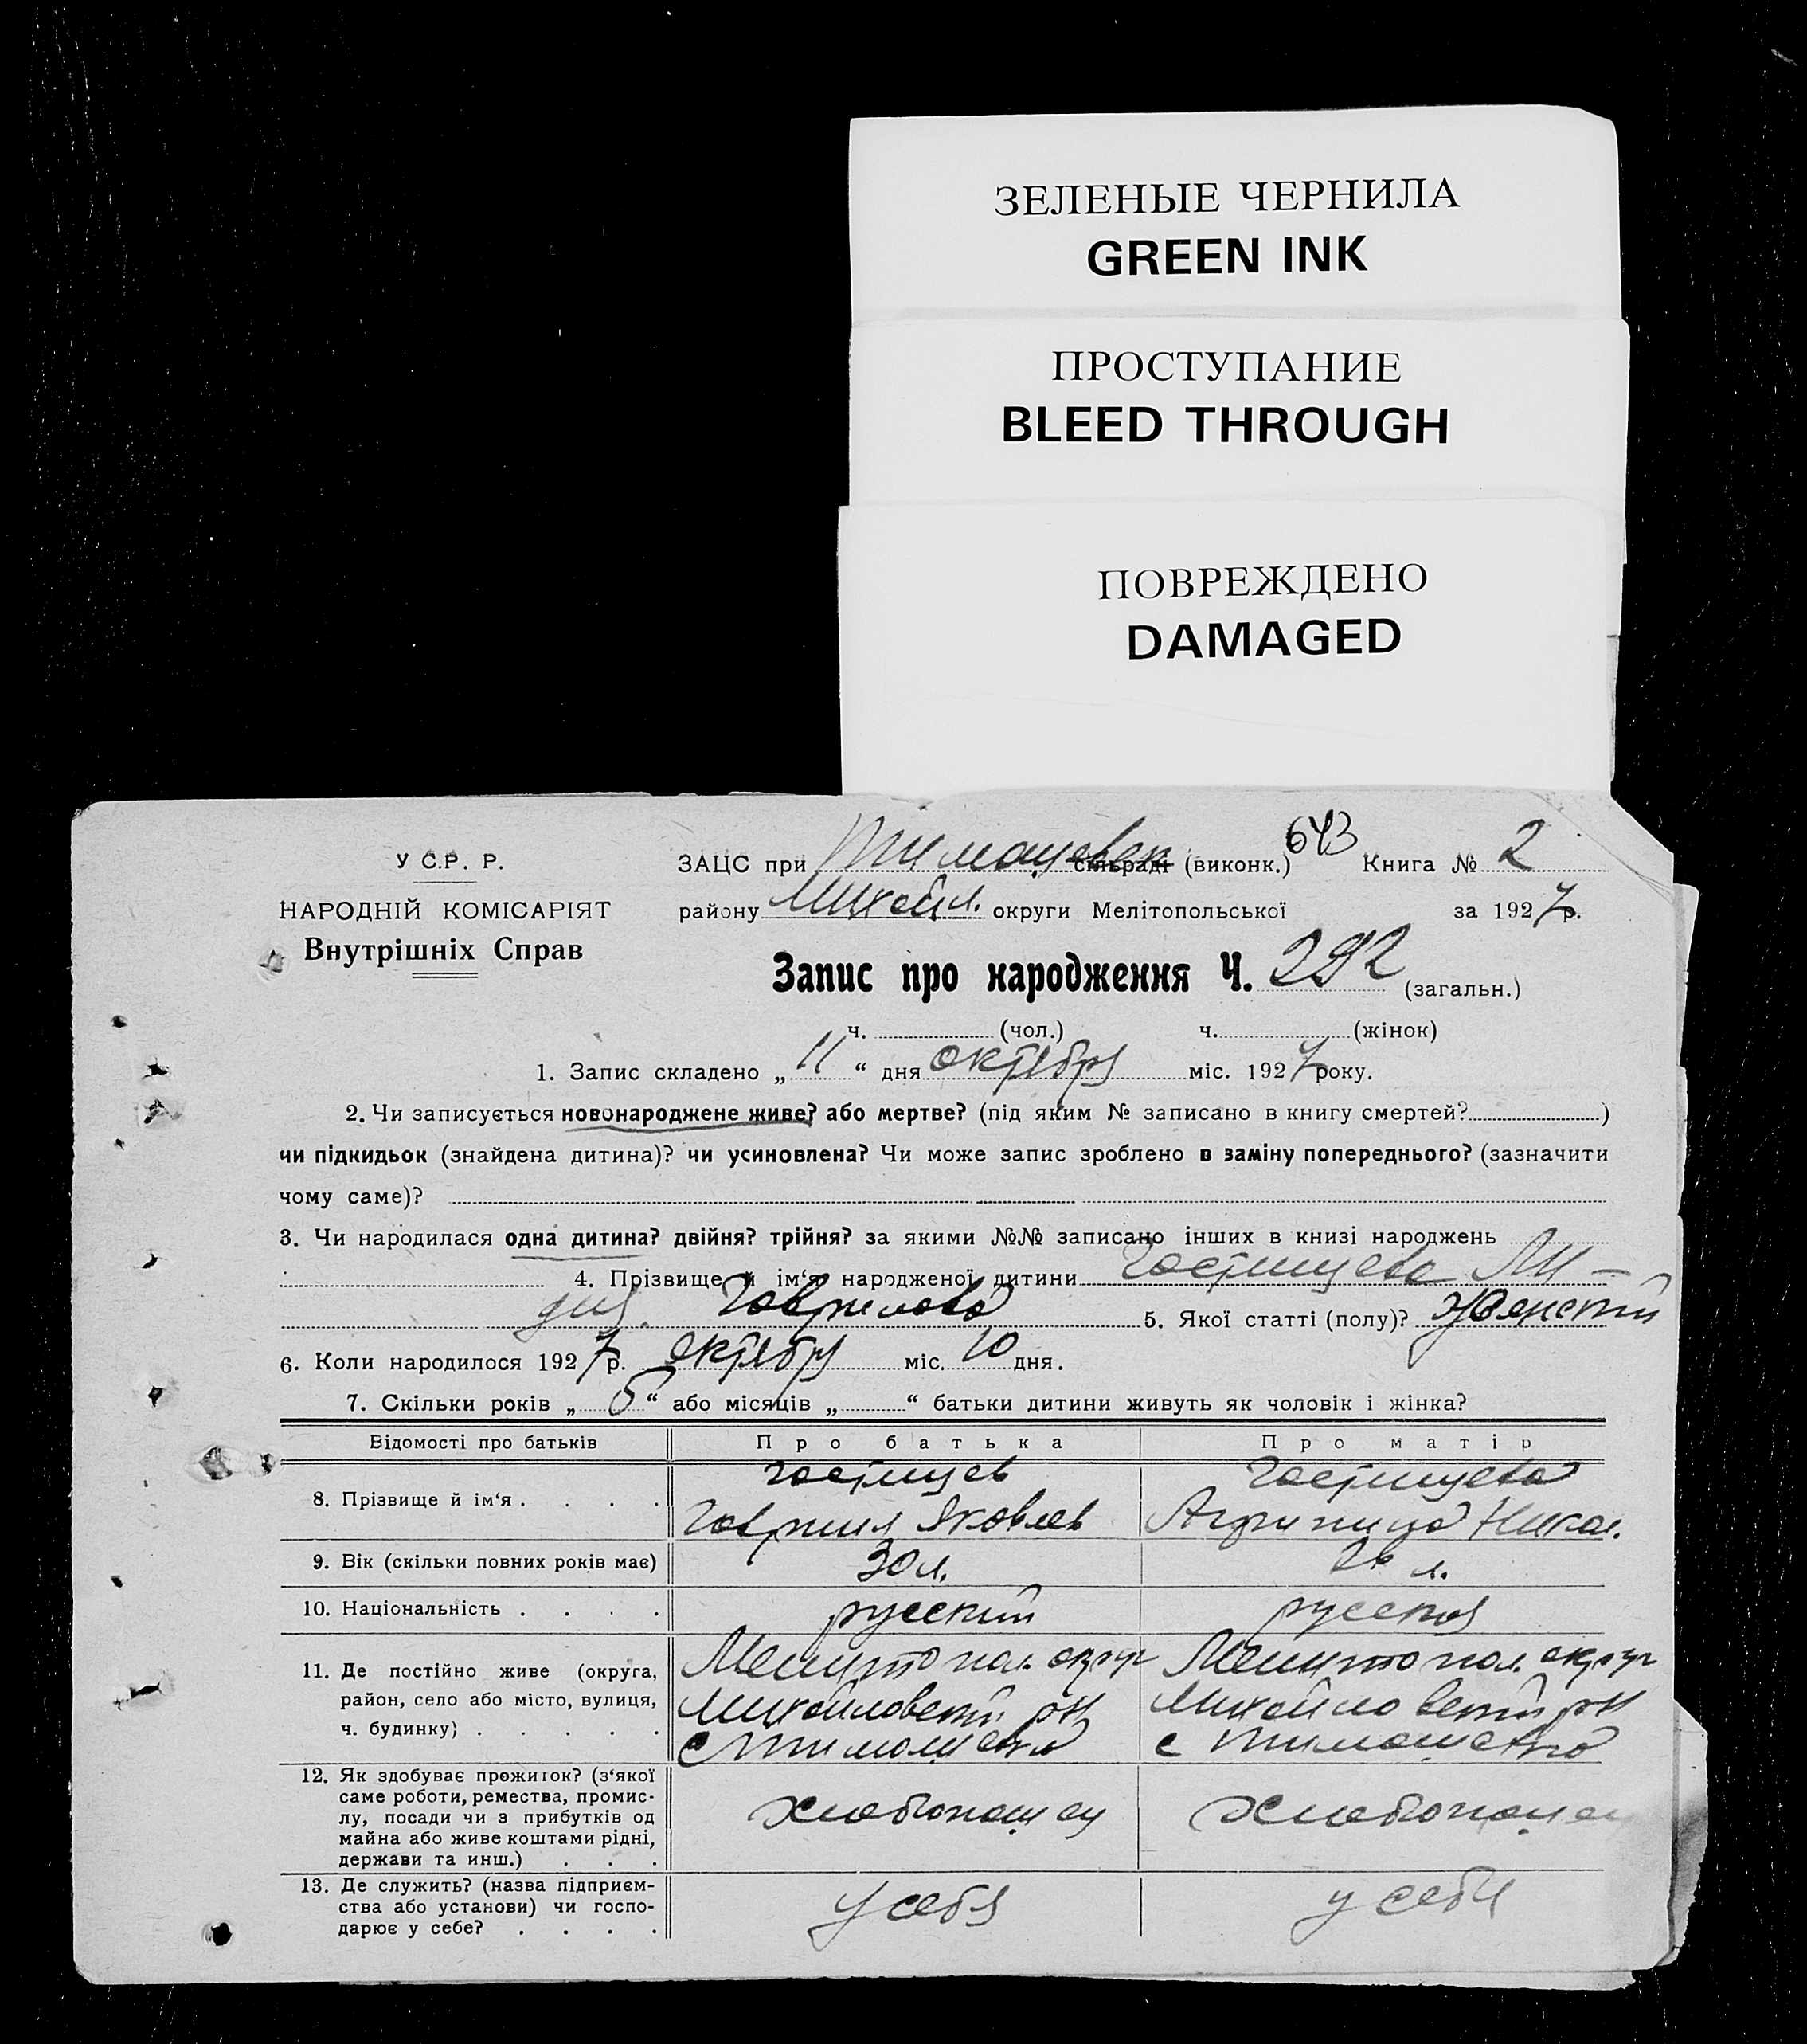 ЗЕЛЕНЫЕ ЧЕРНИЛА
GREEN INK
ПРОСТУПАНИЕ
BLEED THROUGH
ПОВРЕЖДЕНО
DAMAGED
643
У С.Р. Р.
ЗАЦС при Тимошевск сільраді (виконк.) Книга № 2
НАРОДНІЙ КОМІСАРІЯТ
району Михайл. округи Мелітопольської за 1927 р.
Внутрішніх Справ
Запис про народження Ч. 292 (загальн.)
ч. (чол.) ч. (жінок)
1. Запис складено „ 11 “ дня октября міс. 1927 року.
2. Чи записується новонароджене живе? або мертве? (під яким № записано в книгу смертей? )
чи підкидьок (знайдена дитина)? чи усиновлена? Чи може запис зроблено в заміну попереднього? (зазначити
чому саме)?
3. Чи народилася одна дитина? двійня? трійня? за якими №№ записано інших в книзі народжень
4. Прізвище й ім‘я народженої дитини Гостищева Ли-
дия. Гаврилова 5. Якої статті (полу)? женский
6. Коли народилося 1927 р. октября міс. 10 дня.
7. Скільки років „ 5 “ або місяців „ “ батьки дитини живуть як чоловік і жінка?
Відомості про батьків Про батька Про матір
8. Прізвище й ім‘я . . . . Гостищев Гостищева
Гавриил Яковлев Агрипина Никол.
9. Вік (скільки повних років має) 30 л. л.
10. Національність . . . . русский русская
11. Де постійно живе (округа, Мелитопол. округ Мелитопол. округ
район, село або місто, вулиця, Михайловский рн Михайловский рн
ч. будинку) . . . . . с Тимошевка с Тимошевка
12. Як здобуває прожиток? (з‘якої
саме роботи, ремества, промис-
лу, посади чи з прибутків од хлебопашец хлебопашец
майна або живе коштами рідні,
держави та инш.) . . .
13. Де служить? (назва підприєм-
ства або установи) чи госпо- у себя у себя
дарює у себе? . . . .